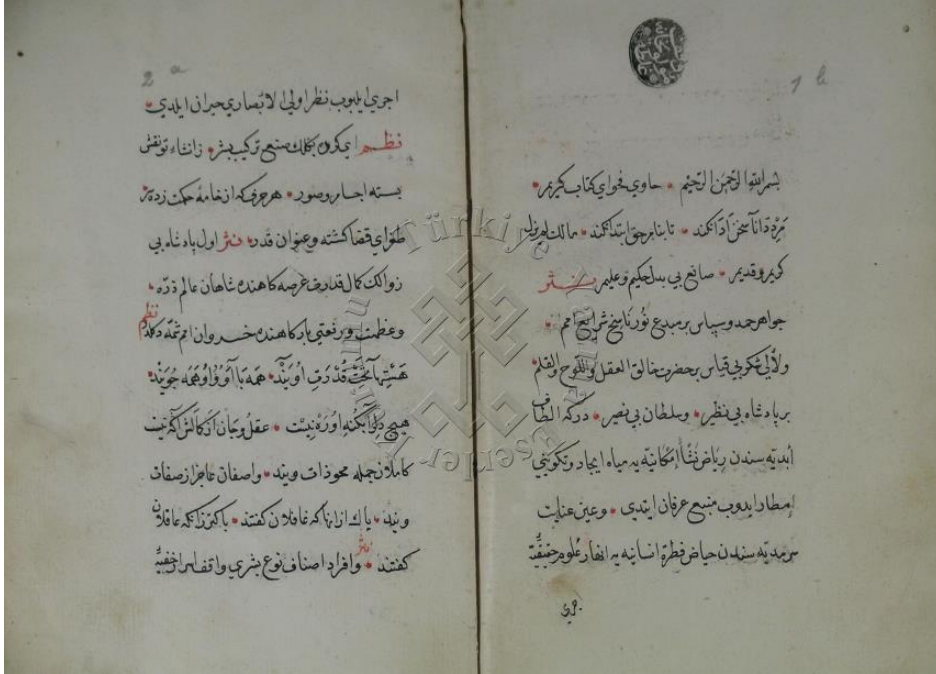 1 b
بسم الله الرحمن الرحيم • حاوي فحواي كتاب كريم •
مرد دانا سخن ادا نكند • تا بنام حق ابتدا نكند •
كريم و قديم • صانع بي بدل حكيم و عليم نثر
جواهر حمد و سپاس بر مبدع نور ناسخ شرايع امم •
ولآلي شكر بي قياس بر حضرت خالق العقل واللوح والقلم
بر پادشاه بي نظير • وسلطان بي نصير • دركه الطاف
أبديه سندن رياض نشأ إمكانيه يه مياه ايجاد وتكويني
إمطار ايدوب منبع عرفان ايتدي • وعين عنايت
سرمديه سندن حياض فطرة انسانيه يه انهار علوم حقيقيه
اجري
2 a
اجري ايلیوب نظر اولي الابصاري حيران ايلدي •
نظم اي كرده بكلك صنع تركيب بشر • ز انشاء تو نقش
بسته اجسام وصور • هر حرفي كه از خامه حكمت زده
طغراي قضا كشته وعنوان قدر • نثر اول پادشاه بي
زوالك كمال قدرتي عرصه كاهنده شاهان عالم ذره •
وعظمت ورفعتي باركاهنده خسروان امم دكلدر نظم
هستيها تحت قدرت اويند • همه با او و او همه جويند •
هيچ دل را بكنه او ره نيست • عقل و جان از كمالش آكه نيست
كاملان جمله محو ذات ويند • واصفان عاجز از صفات
ويند • پاك ازانها كه غافلان كفتند • پاكتر زانكه عاقلان
كفتند • نثر وافراد اصناف نوع بشري واقف اسرار خفيه